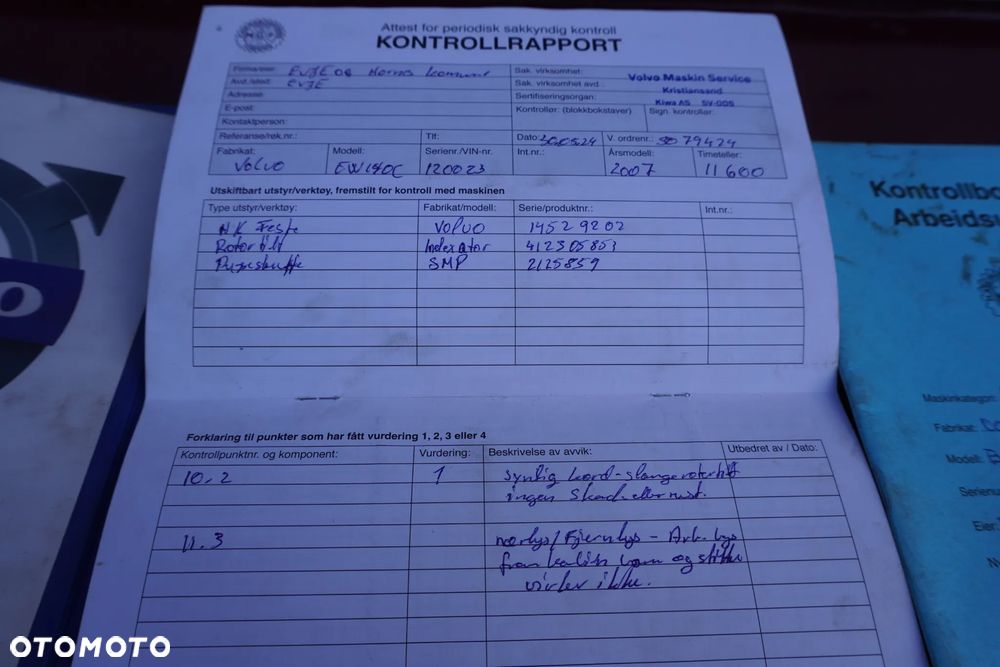 Attest for periodisk sakkyndig kontroll
KONTROLLRAPPORT
Firma/eier: EVJE OG Hornes kommune
Avd./sted: EVJE
Adresse:
E-post:
Kontaktperson:
Referanse/rek.nr.: Tlf:
Sak. virksomhet: Volvo Maskin Service
Sak. virksomhet avd.: Kristiansand
Sertifiseringsorgan: Kiwa AS SV-005
Kontrollør: (blokkbokstaver) Sign. kontrollør:
Dato: 30.05.24 V. ordrenr.: SO 79424
Fabrikat: Modell: Serienr./VIN-nr. Int.nr.: Årsmodell: Timeteller:
Volvo EW140C 120023 2007 11600
Utskiftbart utstyr/verktøy, fremstilt for kontroll med maskinen
Type utstyr/verktøy: Fabrikat/modell: Serie/produktnr.: Int.nr.:
HK Feste VOLVO 14529202
Rotortilt Indexator 412305853
Pusskuffe SMP 2125859
Forklaring til punkter som har fått vurdering 1, 2, 3 eller 4
Kontrollpunktnr. og komponent: Vurdering: Beskrivelse av avvik: Utbedret av / Dato:
10.2 1 Synlig kord-slange rotortilt
ingen skade eller rust.
11.3 nærlys/Fjernlys - Arb.lys
og
virker ikke.
Kontrollbo
Arbeids
Maskinkategori:
Fabrikat:
Modell:
Serienu
Eier
OTOMOTO